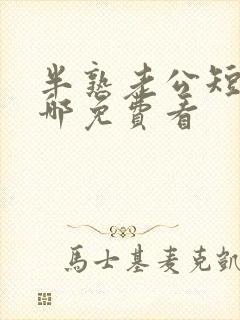 半熟老公短
哪免費看
馬士基麦克凯